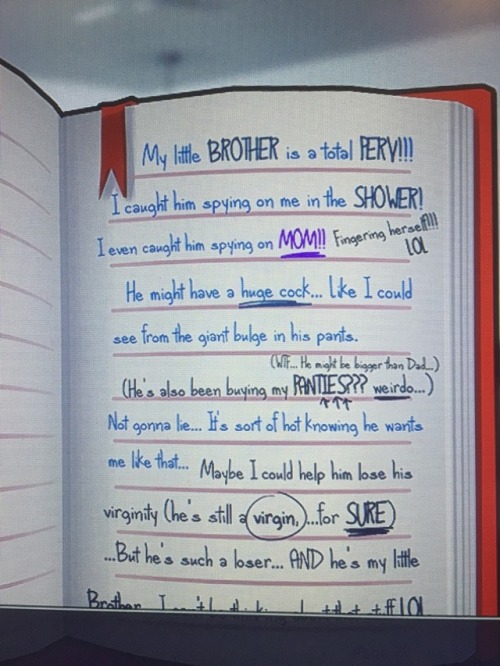 My little BROTHER is a total PERV!!!
I caught him spying on me in the SHOWER!
I even caught him spying on MOM!! Fingering herself!!!
LOL
He might have a huge cock... Like I could
see from the giant bulge in his pants.
(WTF... He might be bigger than Dad...)
(He's also been buying my PANTIES??? weirdo...)
↑↑↑
Not gonna lie... It's sort of hot knowing he wants
me like that... Maybe I could help him lose his
virginity (he's still a virgin,)...for SURE)
...But he's such a loser... AND he's my little
Brother I LOL